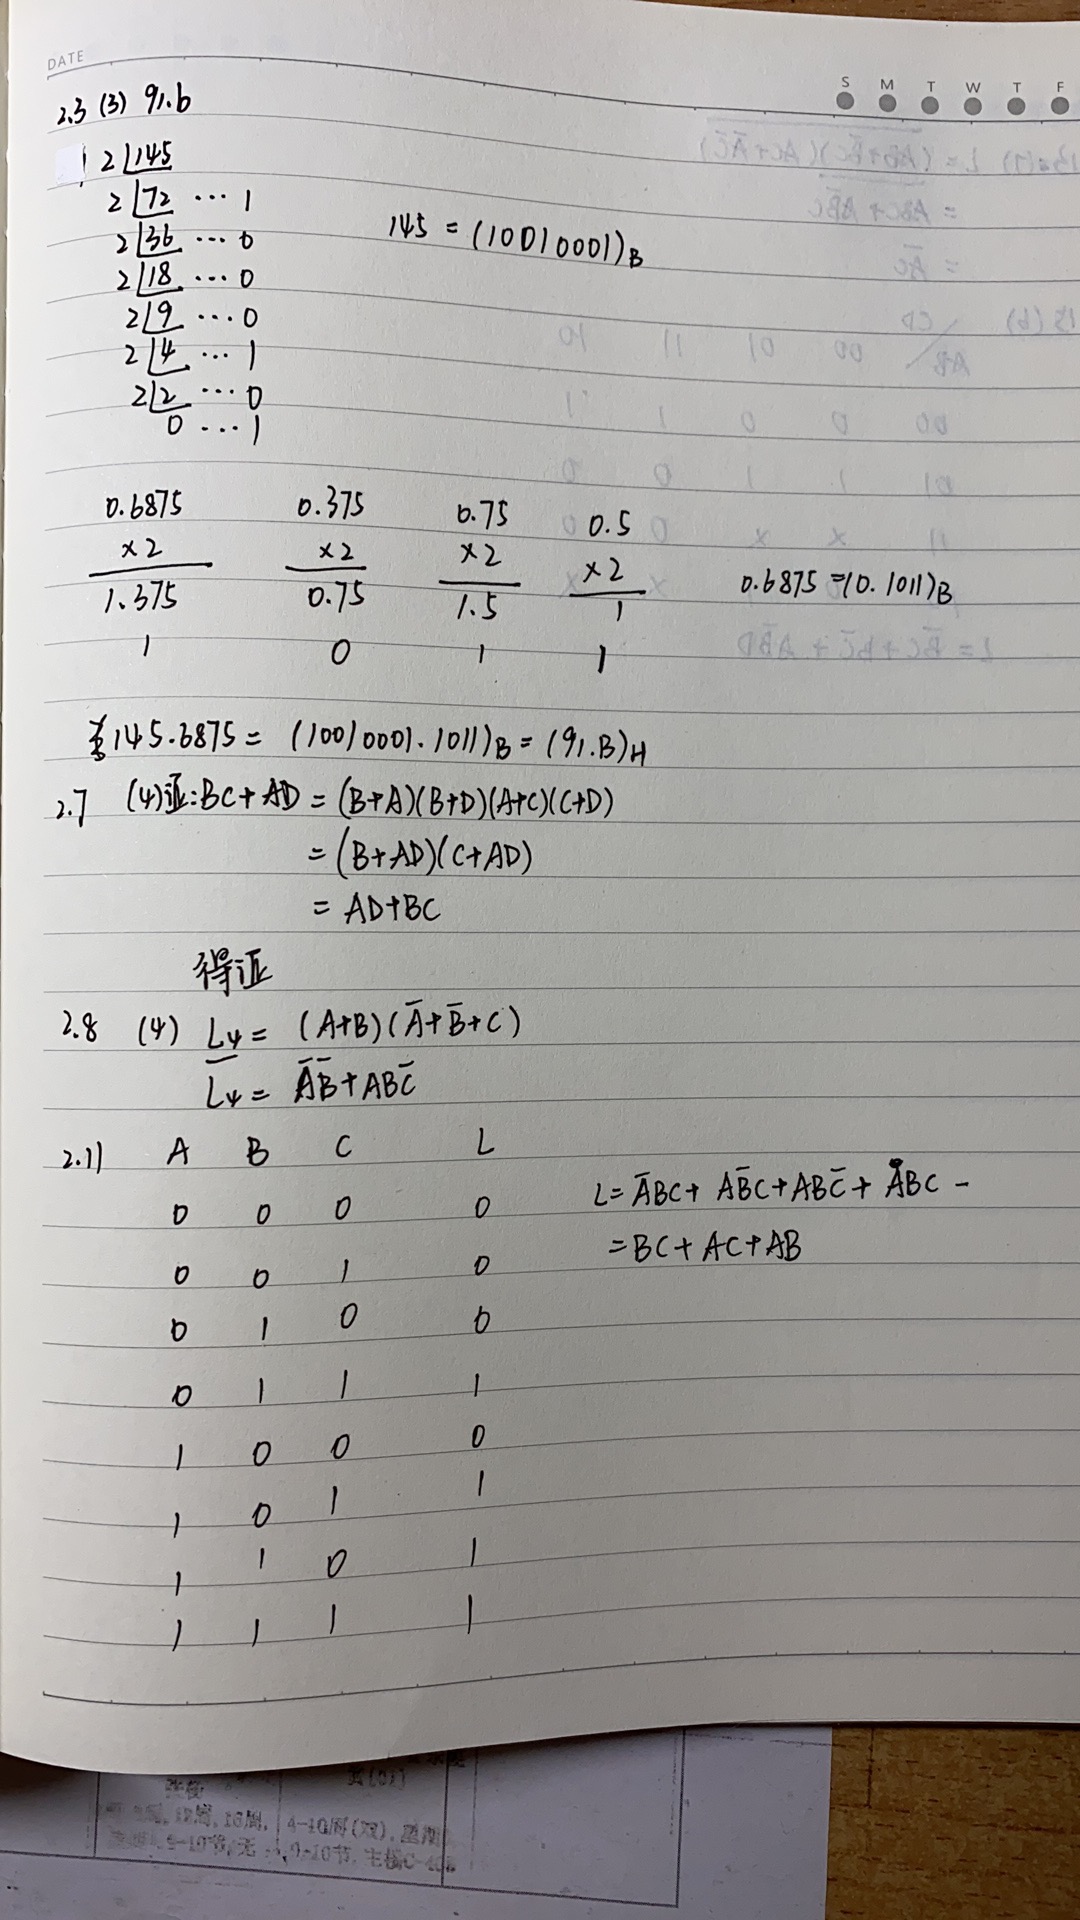 DATE
S M T W T F
2.3 (3) 91.b
2 145
2 72 … 1
2 36 … 0
2 18 … 0
2 9 … 0
2 4 … 1
2 2 … 0
0 … 1
145 = (10010001)B
0.6875 0.375 0.75 0.5
×2 ×2 ×2 ×2
1.375 0.75 1.5 1
1 0 1 1
0.6875 = (0.1011)B
145.6875 = (10010001.1011)B = (91.B)H
2.7 (4) 证: BC + AD = (B+A)(B+D)(A+C)(C+D)
= (B+AD)(C+AD)
= AD+BC
得证
2.8 (4) L4 = (A+B)(A̅+B̅+C)
L̅4 = A̅B̅+ABC̅
2.11 A B C L
0 0 0 0
0 0 1 0
0 1 0 0
0 1 1 1
1 0 0 0
1 0 1 1
1 1 0 1
1 1 1 1
L = A̅BC + AB̅C + ABC̅ + ABC -
= BC + AC + AB
4-10周(双), 星期
9-10节, 主楼C-